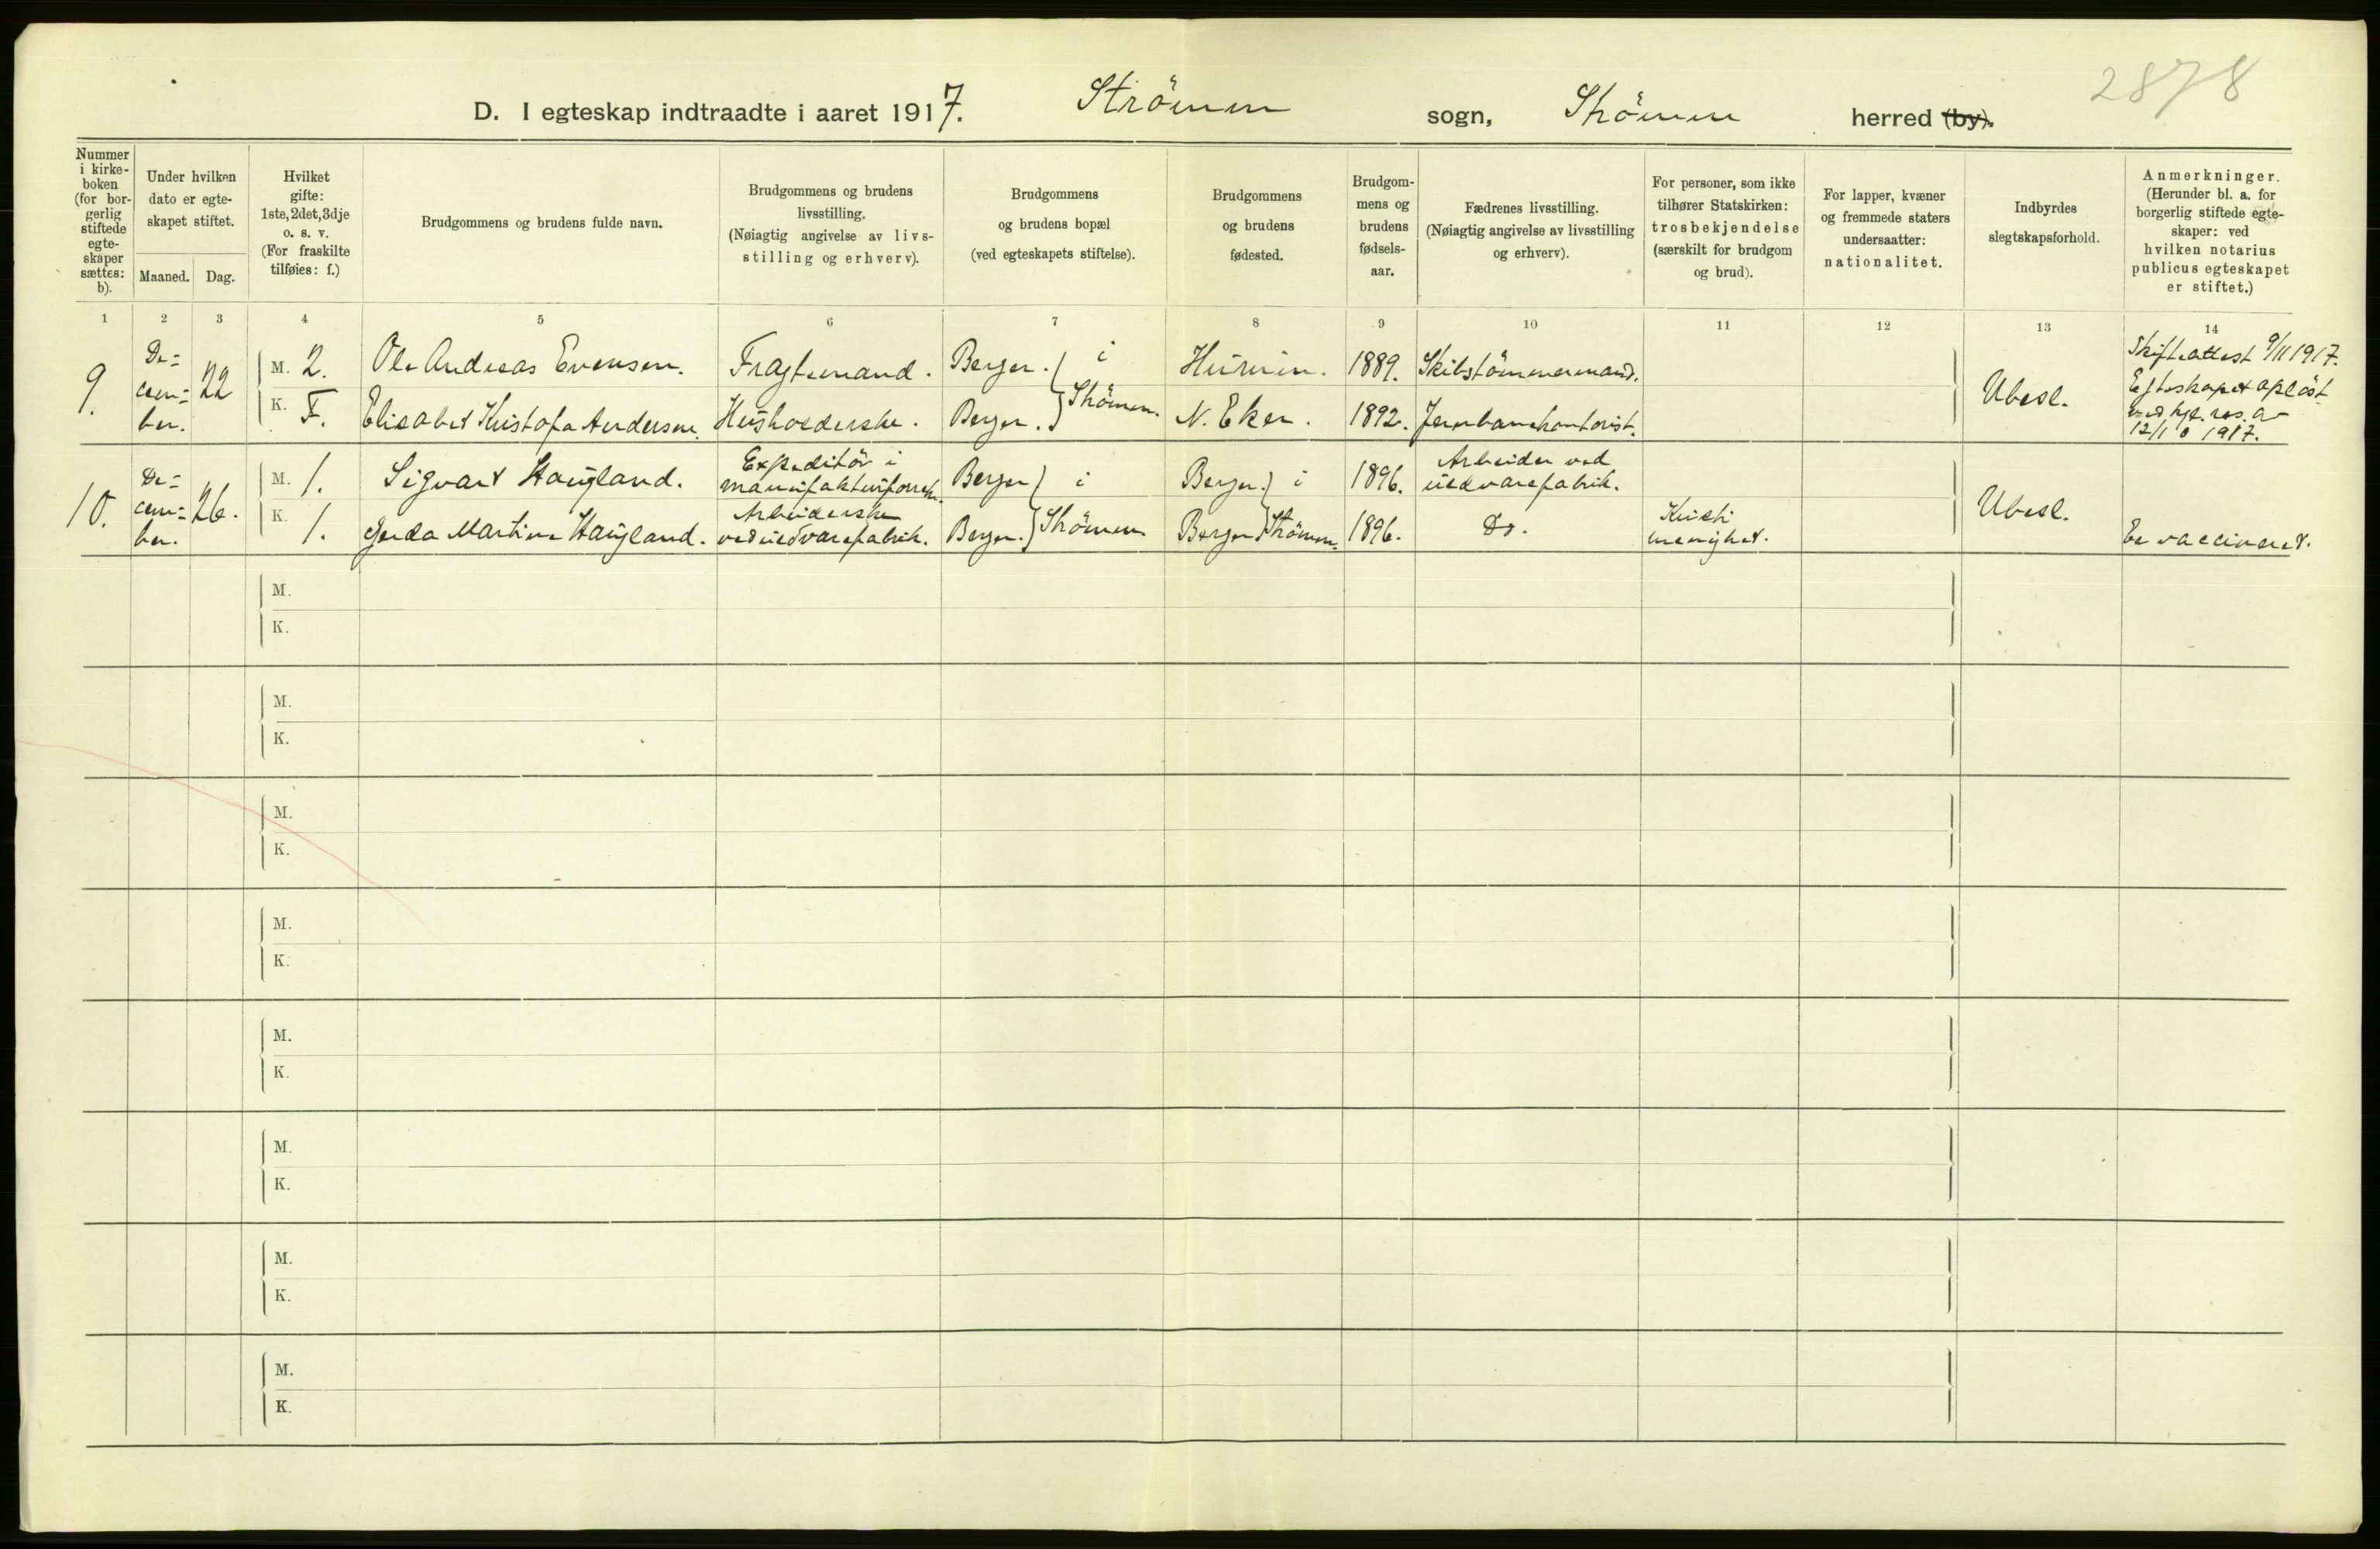 2878
D. I egteskap indtraadte i aaret 1917. Strömm sogn, Strömm herred (by).
Nummer i kirke-boken (for bor-gerlig stiftede egte-skaper sættes: b).
Under hvilken dato er egte-skapet stiftet.
Maaned. Dag.
Hvilket gifte: 1ste, 2det, 3dje o. s. v. (For fraskilte tilføies: f.)
Brudgommens og brudens fulde navn.
Brudgommens og brudens livsstilling. (Nøiagtig angivelse av livs-stilling og erhverv).
Brudgommens og brudens bopæl (ved egteskapets stiftelse).
Brudgommens og brudens fødested.
Brudgom-mens og brudens fødsels-aar.
Fædrenes livsstilling. (Nøiagtig angivelse av livsstilling og erhverv).
For personer, som ikke tilhører Statskirken: trosbekjendelse (særskilt for brudgom og brud).
For lapper, kvæner og fremmede staters undersaatter: nationalitet.
Indbyrdes slegtskapsforhold.
Anmerkninger. (Herunder bl. a. for borgerlig stiftede egte-skaper: ved hvilken notarius publicus egteskapet er stiftet.)
1 2 3 4 5 6 7 8 9 10 11 12 13 14
9. De=cem=ber. 22
M. 2. Ole Andreas Evensen. Fragtemand. Berger. i Strömm. Hurum. 1889. Skibstömmermand.
K. F. Elisabet Kristofa Andersen. Husholderske. Berger. N. Eker. 1892. Jernbanekontorist.
Ubesl.
Skifteattest 9/11 1917.
Egteskapet oplöst
ved kgl. res. av
12/10 1917.
10. De=cem=ber. 26.
M. 1. Sigvart Haugland. Expeditör i manufakturforretn. Berger i Strömm Berger i Strömm. 1896. Arbeider ved uldvarefabrik.
K. 1. Gerda Martine Haugland. Arbeiderske ved uldvarefabrik. Berger. Berger 1896. Do. Kristi menighet.
Ubesl.
Ei vaccineret.
M.
K.
M.
K.
M.
K.
M.
K.
M.
K.
M.
K.
M.
K.
M.
K.